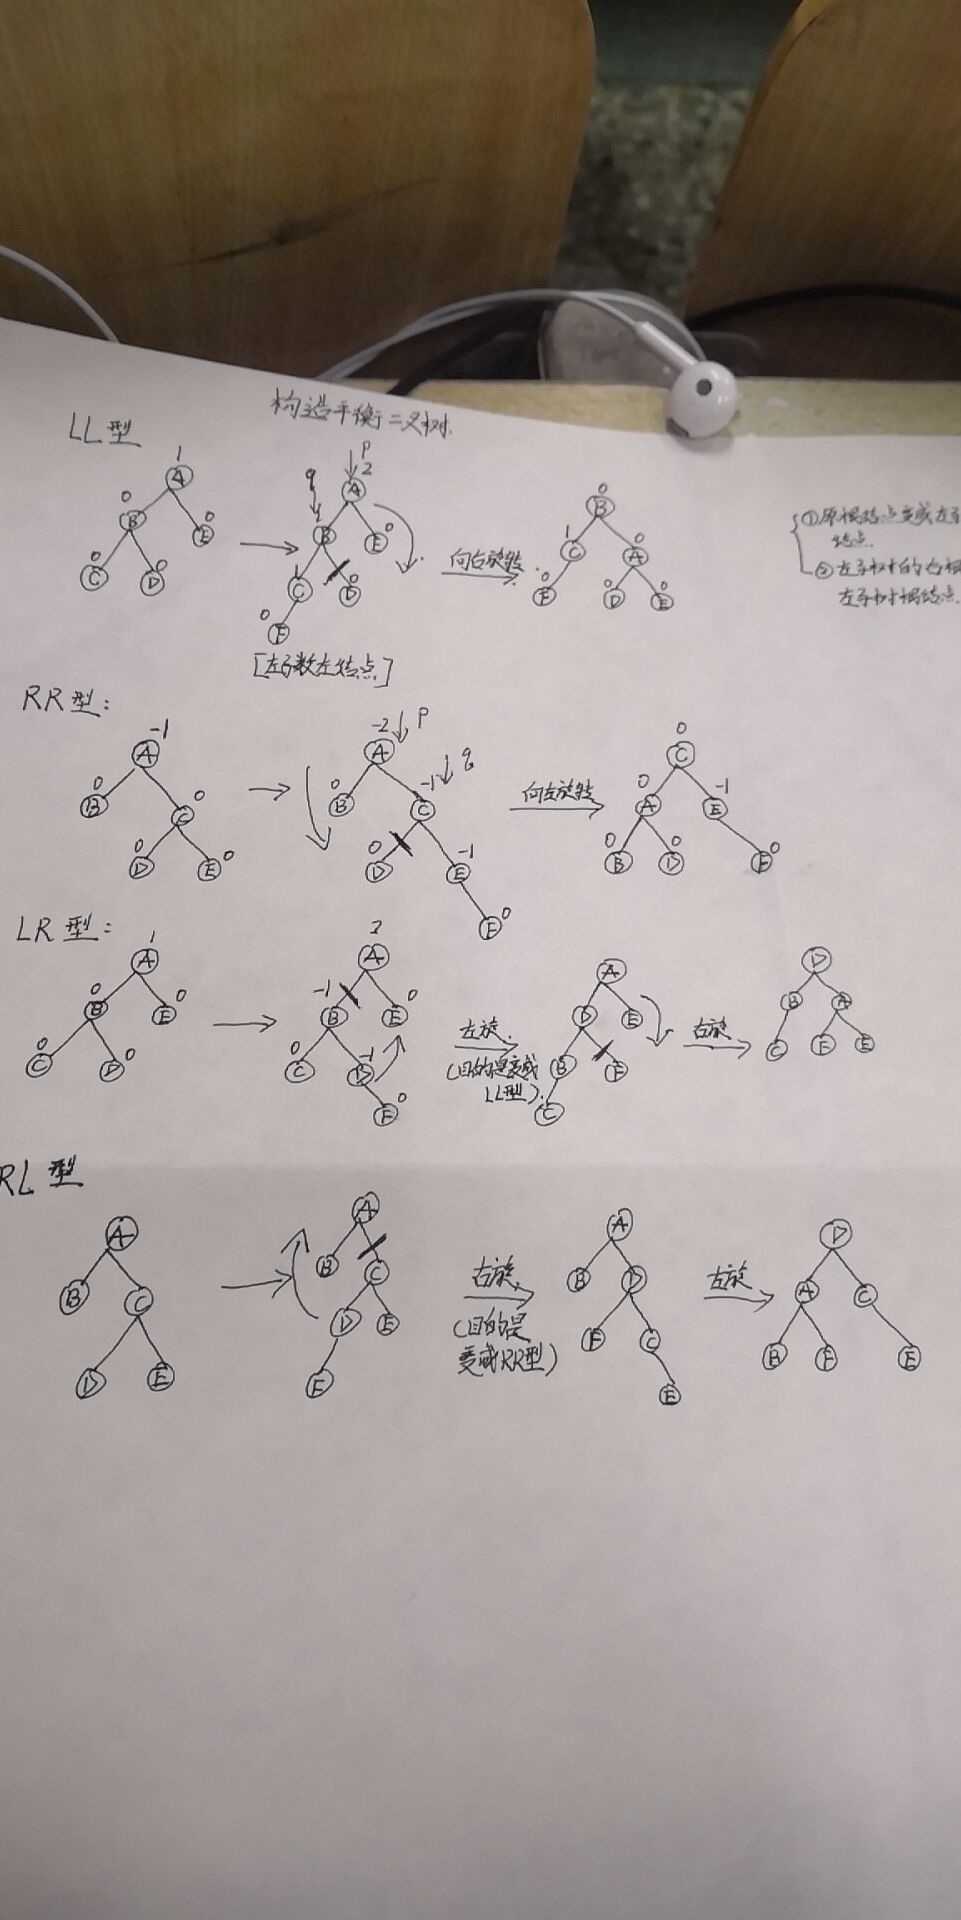 构造平衡二叉树.
LL型
1
A
0
B
0
E
0
C
0
D
P
2
A
q
1
B
0
E
1
C
0
D
0
F
[左子数左结点]
向右旋转.
0
B
1
C
0
A
0
F
0
D
0
E
①原根结点变成左子
结点.
②左子树的右根
左子树根结点.
RR型:
-1
A
0
B
0
C
0
D
0
E
-2
P
A
0
B
-1
q
C
0
D
-1
E
0
F
向左旋转
0
C
0
A
-1
E
0
B
0
D
0
F
LR型:
1
A
0
B
0
E
0
C
0
D
2
A
-1
B
0
E
0
C
-1
D
0
F
左旋.
(目的是变成
LL型).
A
D
E
B
F
C
右旋.
D
B
A
C
F
E
RL型
A
B
C
D
E
A
B
C
D
E
F
右旋.
(目的是
变成RR型)
A
B
D
F
C
E
左旋.
D
A
C
B
F
E